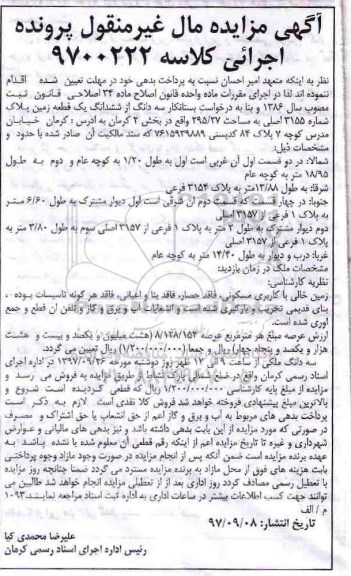 آگهی مزایده مال غیرمنقول پرونده
اجرائی کلاسه ۹۷۰۰۲۲۲
نظر به اینکه متعهد امیر احسان نسبت به پرداخت بدهی خود در مهلت تعیین شده اقدام
ننموده اند لذا در اجرای مقررات ماده واحده قانون اصلاح ماده ۳۴ اصلاحی قانون ثبت
مصوب سال ۱۳۸۶ و بنا به درخواست بستانکار سه دانگ از ششدانگ یک قطعه زمین پلاک
شماره ۳۱۵۵ اصلی به مساحت ۲۹۵/۲۷ واقع در بخش ۲ کرمان به ادرس : کرمان خیابان
مدرس کوچه ۷ پلاک ۸۴ کدپستی ۷۶۱۵۹۳۹۸۸۹ که سند مالکیت آن صادر شده با حدود و
مشخصات ذیل:
شمالا: در دو قسمت اول آن غربی است اول به طول ۱/۲۰ به کوچه عام و دوم به طول
۱۸/۹۵ متر به کوچه عام
شرقا: به طول ۱۳/۸۸متر به پلاک ۳۱۵۴ فرعی
جنوبا: در چهار قسمت که قسمت دوم ان شرقی است اول دیوار مشترک به طول ۶/۶۰ متر
به پلاک ۱ فرعی از ۳۱۵۷ اصلی
دوم دیوار مشترک به طول ۲ متر به پلاک ۱ فرعی از ۳۱۵۷ اصلی سوم به طول ۳/۸۰ متر به
پلاک ۱ فرعی از ۳۱۵۷ اصلی
غربا: درب و دیوار به طول ۱۴/۴۰ متر به کوچه عام
مشخصات ملک در زمان بازدید:
نظریه کارشناسی:
زمین خالی با کاربری مسکونی، فاقد حصار، فاقد بنا و اعیانی، فاقد هر گونه تاسیسات بوده ،
بنای قدیمی تخریب و بارگیری شده است و انشعابات آب و برق و گاز و تلفن ان قطع و جمع
آوری شده است.
ارزش عرصه مبلغ هر مترمربع عرصه ۸/۱۲۸/۱۵۴ (هشت میلیون و یکصد و بیست و هشت
هزار و یکصد و پنجاه چهار) ریال و جمعا (۱/۲۰۰/۰۰۰/۰۰۰) ریال تعیین می گردد.
سه دانگ ملکی از ساعت ۹ الی ۱۲ ظهر روز دوشنبه مورخه ۱۳۹۷/۰۹/۲۶ در اداره اجرای
اسناد رسمی کرمان واقع در ضلع شمالی پارک نشاط از طریق مزایده به فروش می رسد و
مزایده از مبلغ پایه کارشناسی ۱/۲۰۰/۰۰۰/۰۰۰ ریال که قطعی گردیده است شروع و
بالاترین مبلغ پیشنهادی فروخته خواهد شد فروش کلا نقدی است لازم به ذکر است
پرداخت بدهی های مربوط به آب و برق و گاز اعم از حق انشعاب یا حق اشتراک و مصرف
در صورتی که مورد مزایده از این بابت بدهی داشته باشد و نیز بدهی های مالیاتی و عوارض
شهرداری و غیره تا تاریخ مزایده اعم از اینکه رقم قطعی آن معلوم شده یا نشده باشد به
عهده برنده مزایده است ضمن آنکه پس از انجام مزایده در صورت وجود مازاد وجوه پرداختی
بابت هزینه های فوق از محل مازاد به برنده مزایده مسترد می گردد ضمنا چنانچه روز مزایده
با تعطیل رسمی مصادف گردد روز اداری بعد از تعطیلی مزایده انجام خواهد شد طالبین می
توانند جهت کسب اطلاعات بیشتر در ساعات اداری به اداره ثبت اسناد مراجعه نمایند.۱۰۹۳
م / الف
تاریخ انتشار: ۹۷/۰۹/۰۸
علیرضا محمدی کیا
رئیس اداره اجرای اسناد رسمی کرمان